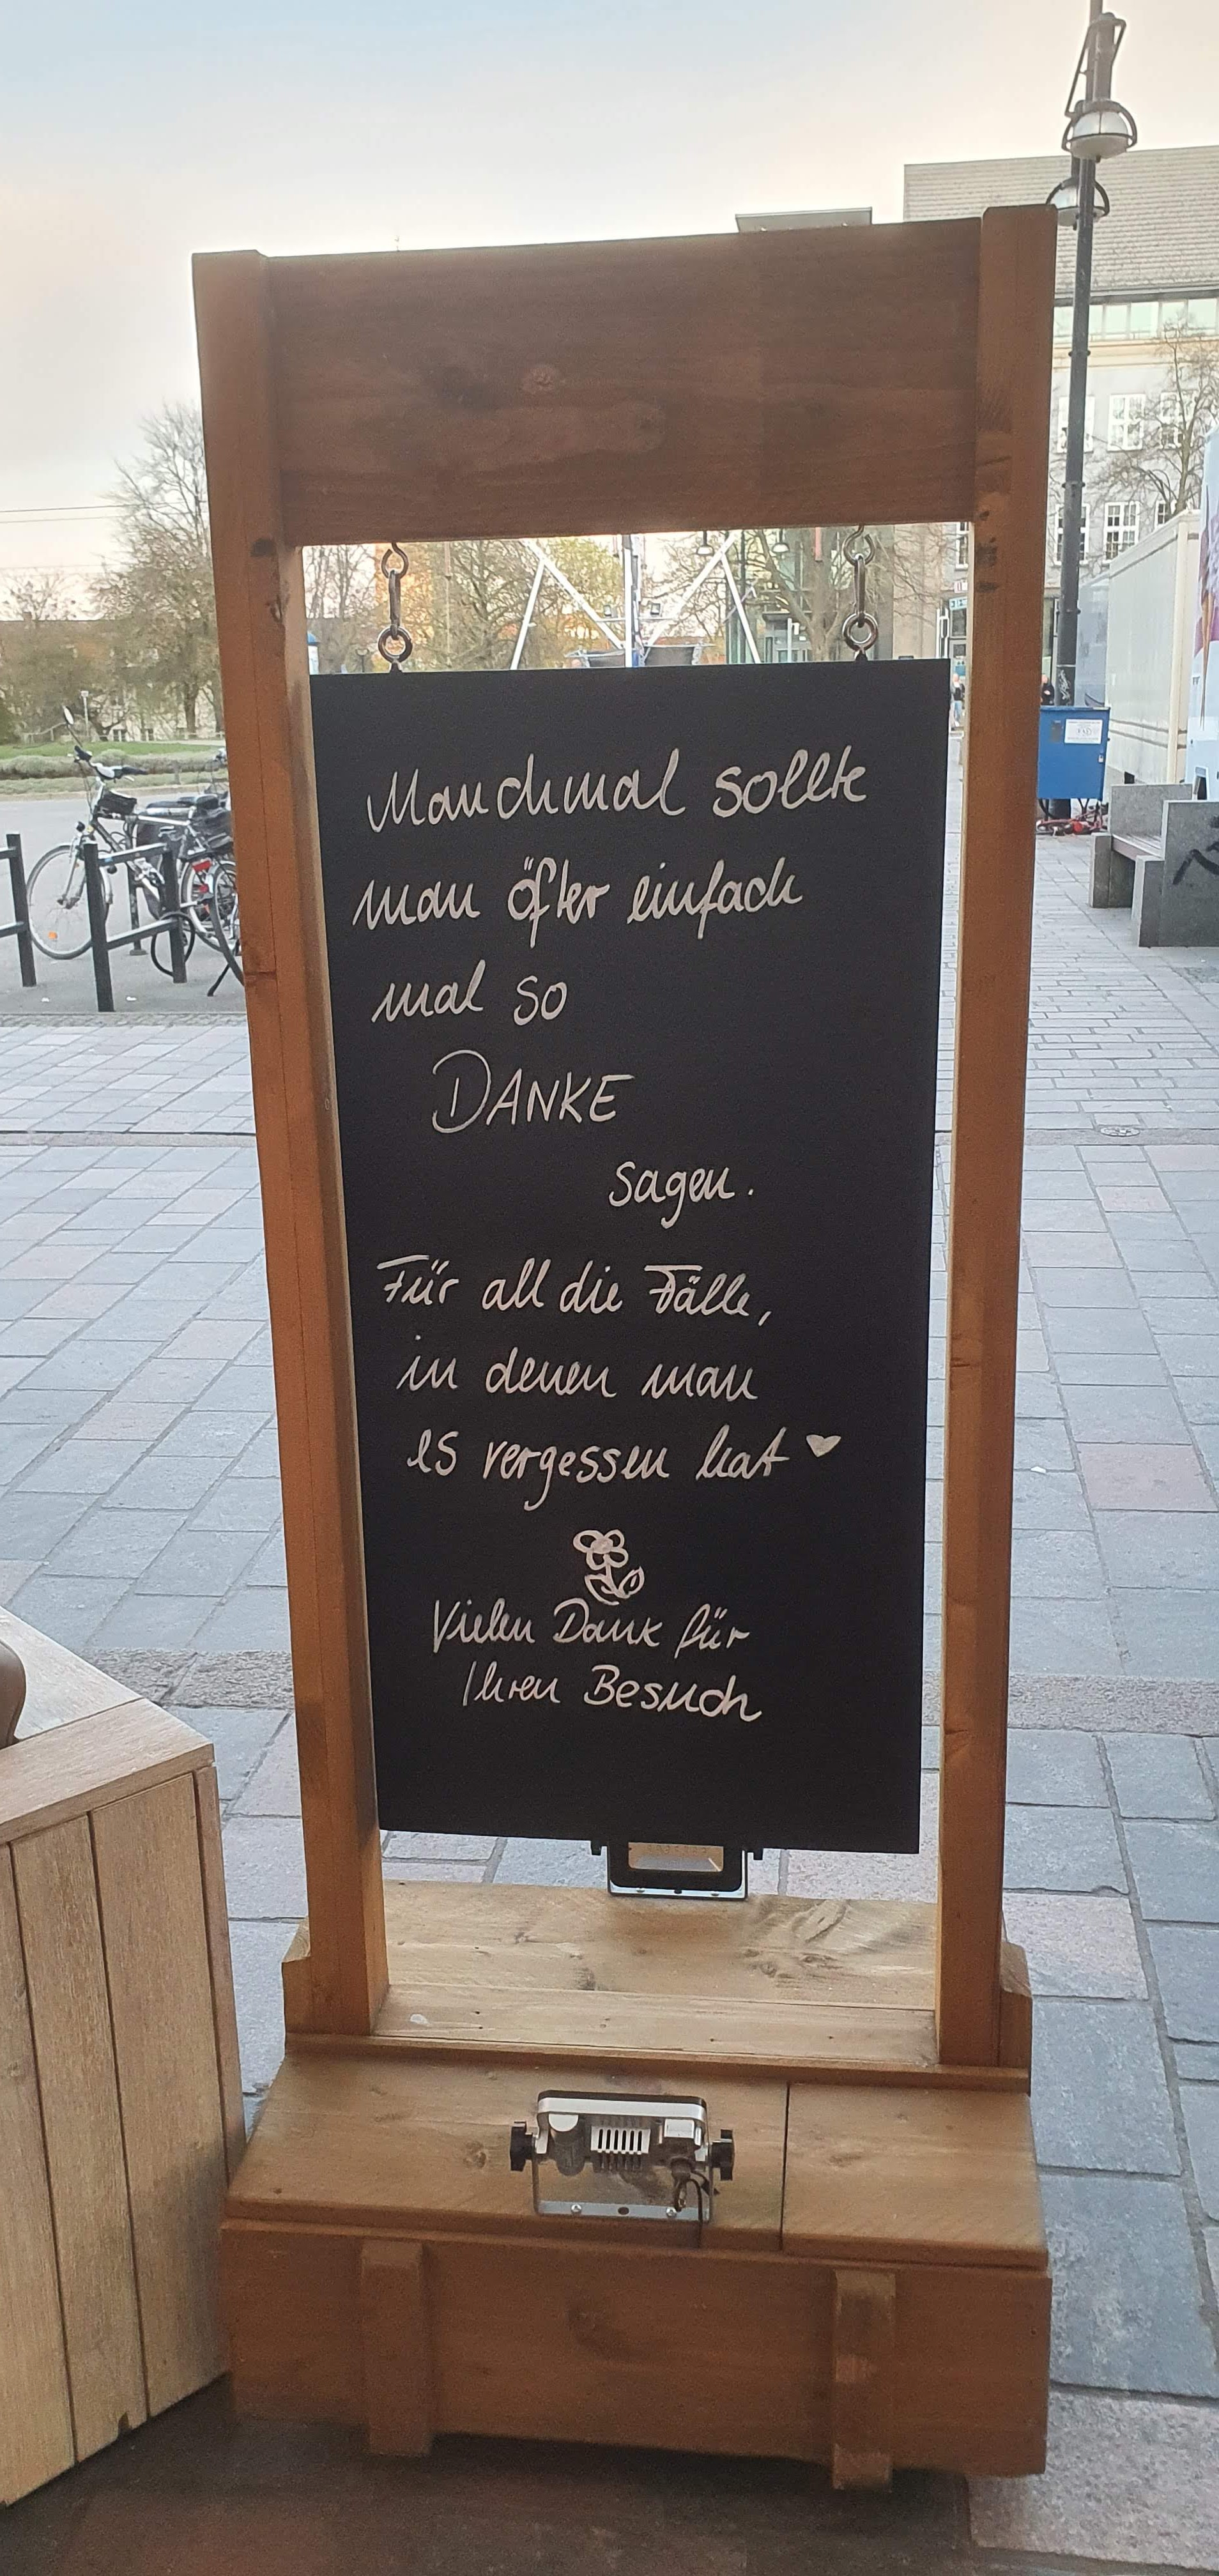 Manchmal sollte
man öfter einfach
mal so
DANKE
sagen.
Für all die Fälle,
in denen man
es vergessen hat ♥
Vielen Dank für
Ihren Besuch